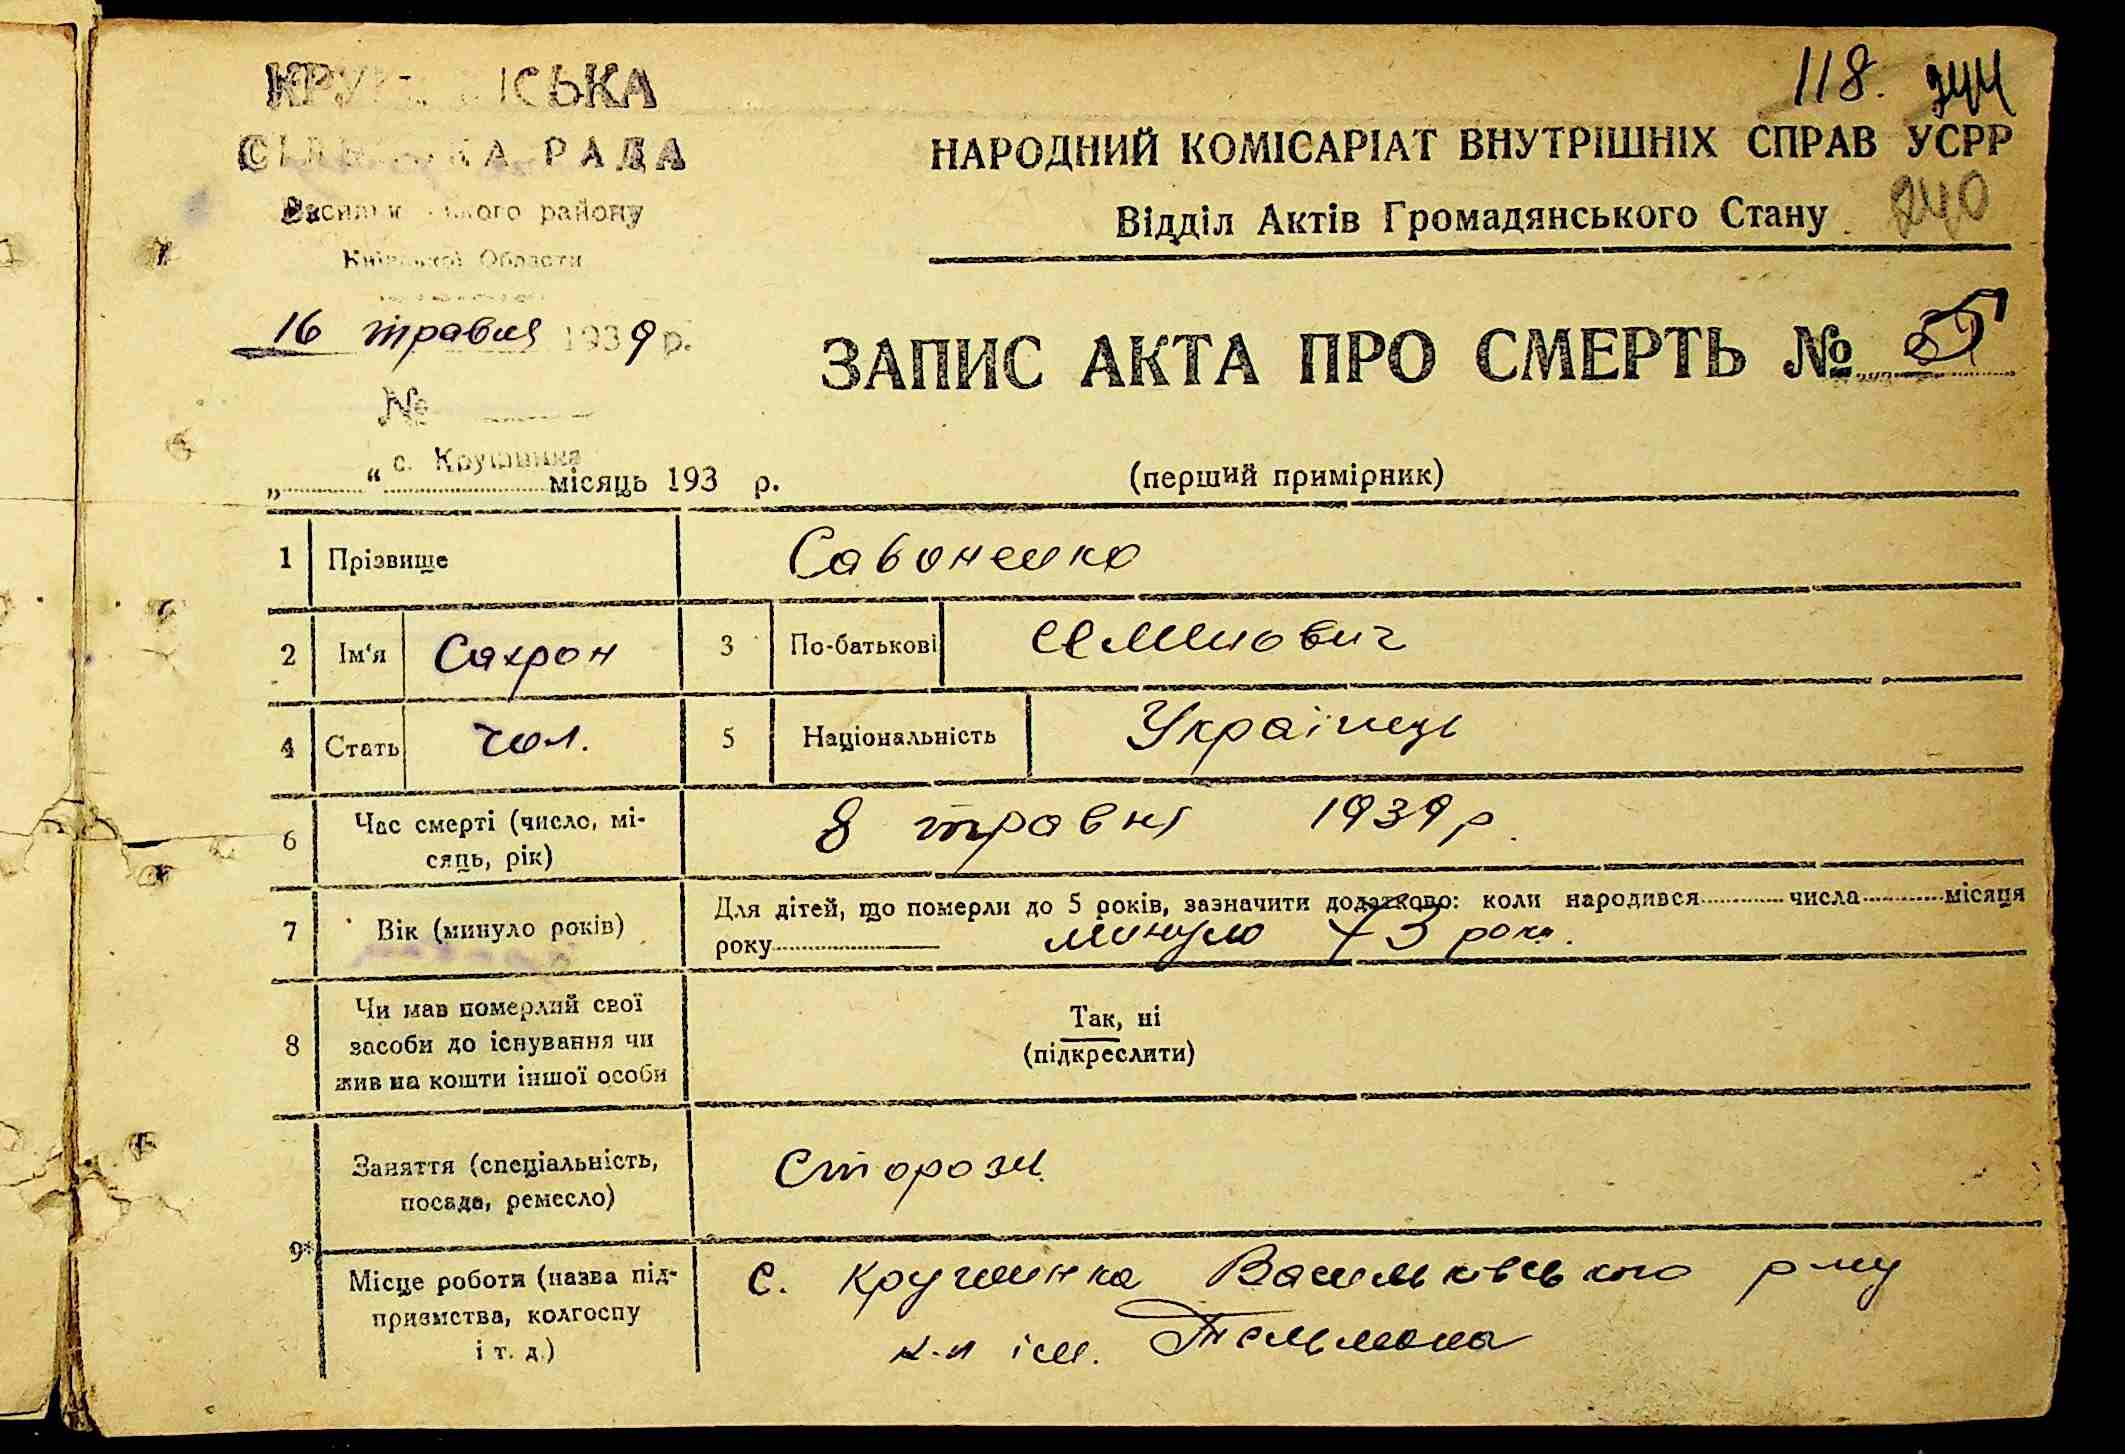 118. 244
КРУ ІСЬКА
СІЛ КА РАДА
Василь ького району
Київської Области
16 травня 1939 р.
№
с. Крушинка
НАРОДНИЙ КОМІСАРІАТ ВНУТРІШНІХ СПРАВ УСРР
Відділ Актів Громадянського Стану
240
ЗАПИС АКТА ПРО СМЕРТЬ № 5
„ “ місяць 193 р.
(перший примірник)
1 Прізвище Савоненко
2 Ім‘я Сахрон 3 По-батькові
4 Стать чол. 5 Національність Українець
6 Час смерті (число, мі-
сяць, рік) 8 травня 1939 р.
7 Вік (минуло років) Для дітей, що померли до 5 років, зазначити додатково: коли народився числа місяця
року минуло 73 роки.
8 Чи мав померлий свої
засоби до існування чи
жив на кошти іншої особи
Так, ні
(підкреслити)
9* Заняття (спеціальність,
посада, ремесло) Сторож
Місце роботи (назва під-
приємства, колгоспу
і т. д.)
с. Крушинка Васильківського р-ну
к-п ім. Тельмана